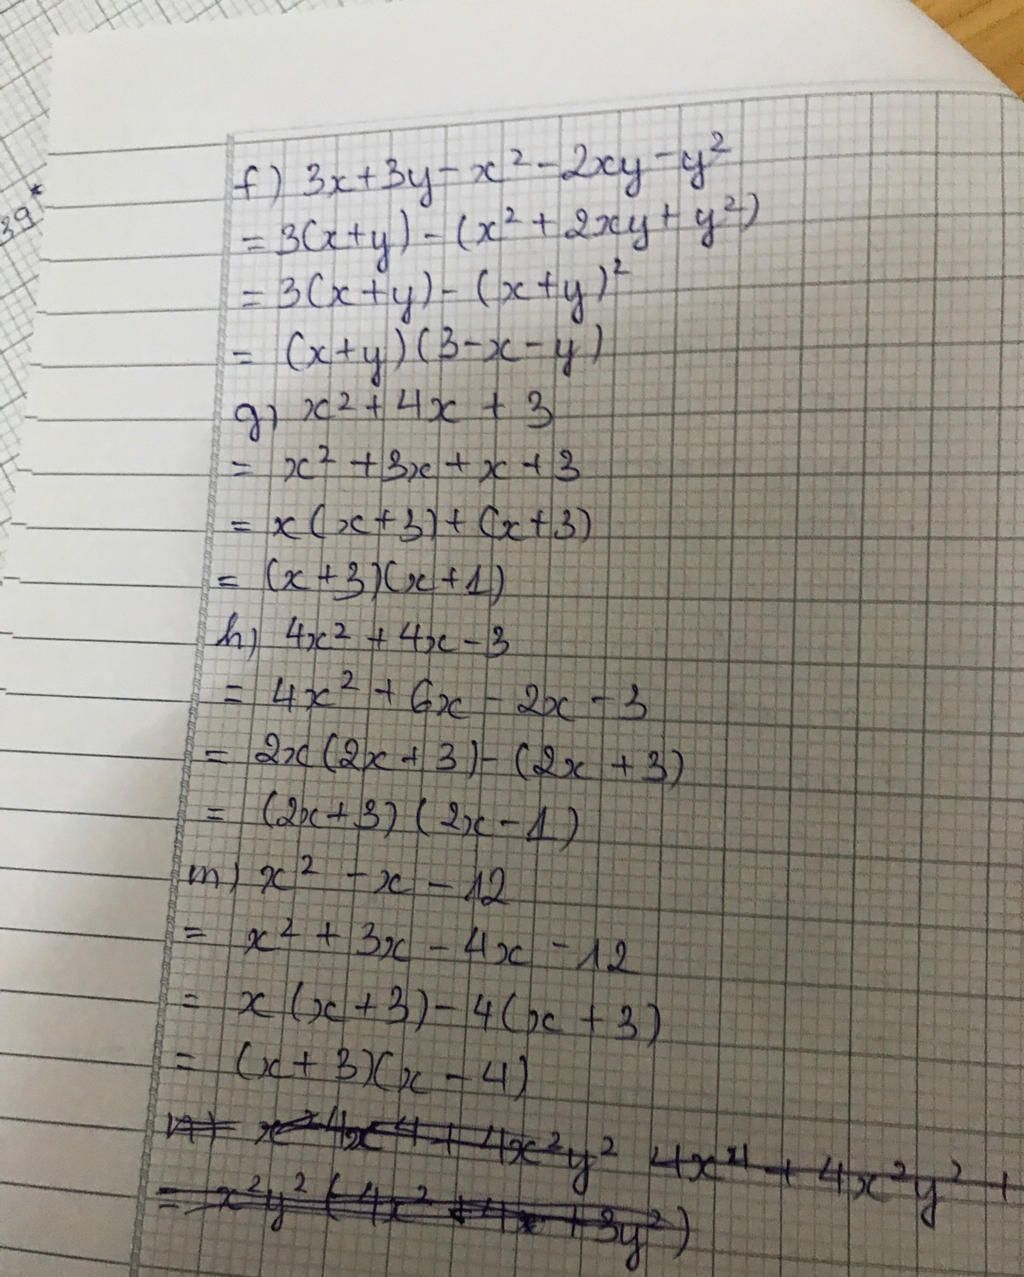 39*
f) 3x+3y-x²-2xy-y²
= 3(x+y)-(x²+2xy+y²)
= 3(x+y)-(x+y)²
= (x+y)(3-x-y)
g) x²+4x+3
= x²+3x+x+3
= x(x+3)+(x+3)
= (x+3)(x+1)
h) 4x²+4x-3
= 4x²+6x-2x-3
= 2x(2x+3)-(2x+3)
= (2x+3)(2x-1)
m) x²-x-12
= x²+3x-4x-12
= x(x+3)-4(x+3)
= (x+3)(x-4)
4x⁴+4x²y² 4x⁴+4x²y²+
= x²y²(4x² +3y²)